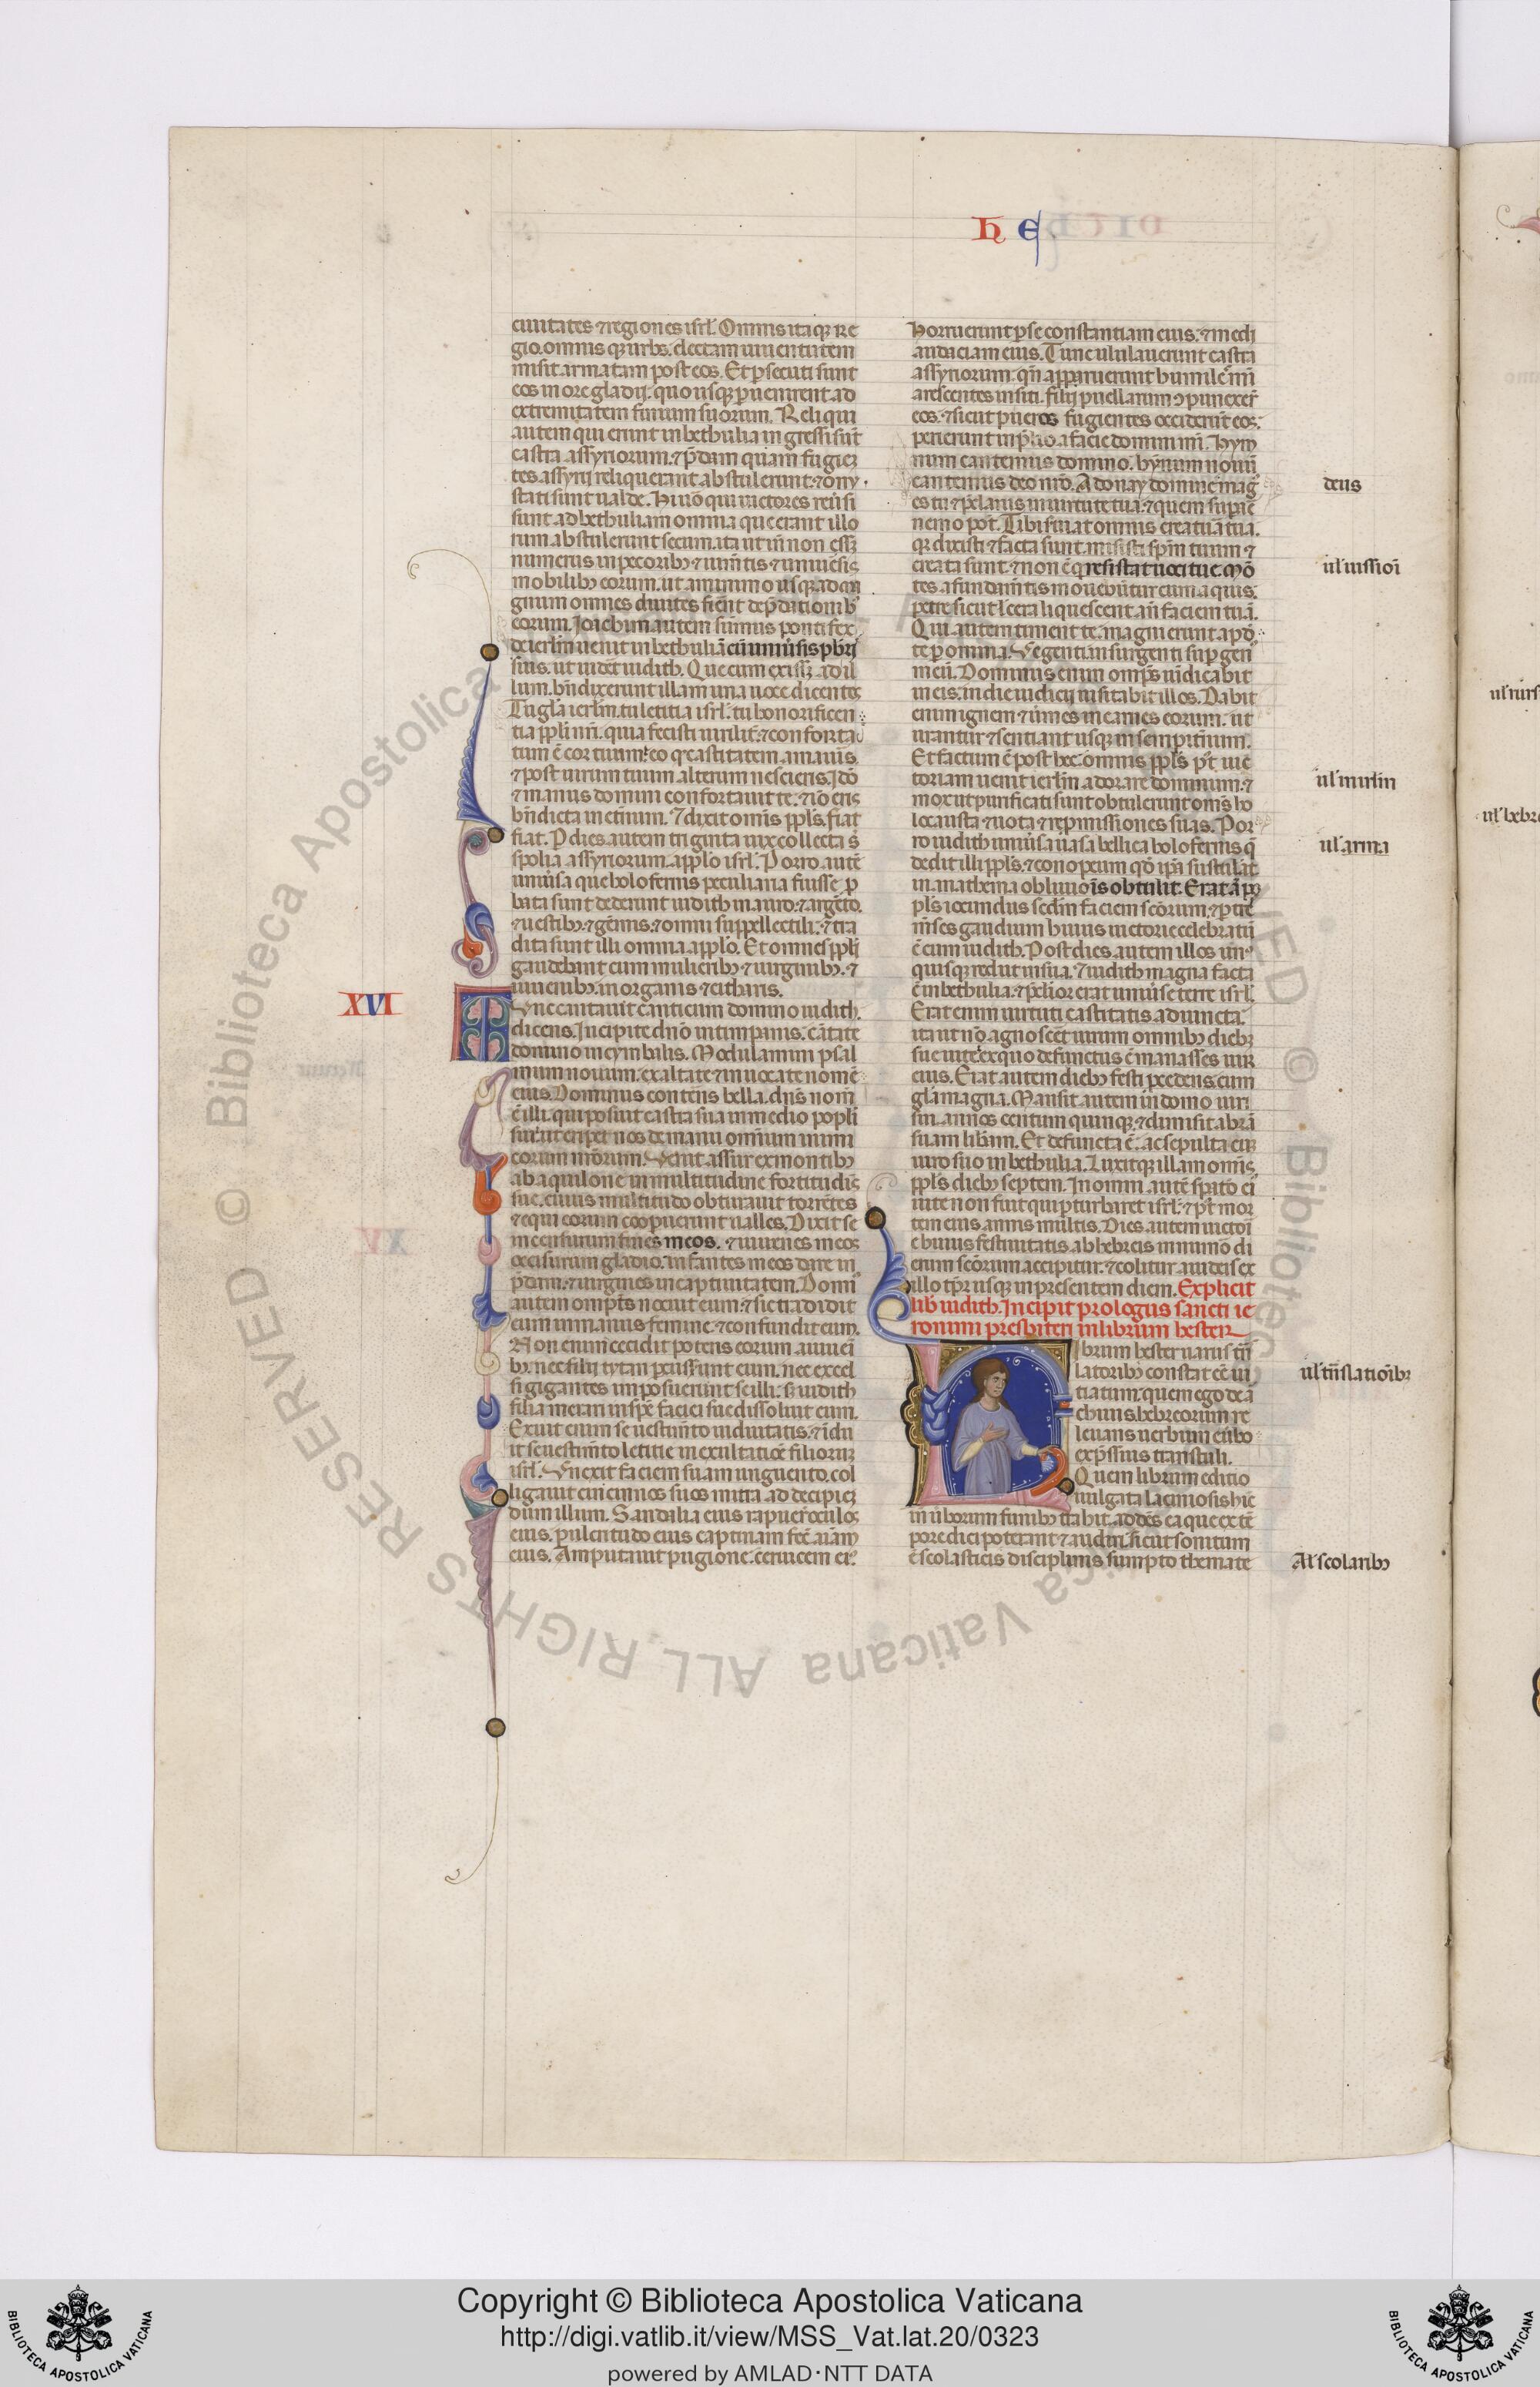 h e
ciuitates ⁊ regiones isrl̅. Omnis itaqꝫ re
gio. omnis qꝫ urbs. electam iuuentutem
misit armatam post eos. Et p̱secuti sunt
eos in ore gladij. quo usqꝫ p̱uenirent ad
extremitatem finium suorum. Reliqui
autem qui erant in bethulia ingressi su̅t
castra assyriorum. ⁊ p̅dam quam fugien
tes assyrij reliquerant abstulerunt. ⁊ ony
stati sunt ualde. Hi uo̅ qui uictores reu̅si
sunt ad bethuliam omnia que erant illo
rum abstulerunt secum. ita ut n̅ non esset
numerus in pecoribꝫ ⁊ ium̅tis ⁊ uniue̅sis
mobilibꝫ eorum. ut a minimo usqꝫ ad ma
gnum omnes diuites fierent de p̅dationibꝫ
eorum. Ioiachim autem su̅mus pontifex
de ierl̅m uenit in bethulia̅ cu̅ uniu̅sis p̅bri
suis. ut uidet iudith. Que cum exisset ad il
lum. bn̅dixerunt illam una uoce dicentes
Tu gl̅a ierl̅m. tu letitia isrl̅. tu honorificen
tia pp̅li nr̅i. quia fecisti uirilit̅. ⁊ conforta
tum e̅ cor tuum. eo qꝫ castitatem amauis
⁊ post uirum tuum alterum nescieris. Ido̅
⁊ manus domini confortauit te. ⁊ io̅ eris
bn̅dicta in et̅num. ⁊ dixit omnis pp̅ls. fiat
fiat. P̱ dies autem triginta uix collecta s̅
spolia assyriorum. a pp̅lo isrl̅. Porro aute̅
uniu̅sa que holofernis peculiaria fuisse p̱
bata sunt dederunt iudith in auro. ⁊ arge̅to.
⁊ uestibꝫ. ⁊ ge̅mis. ⁊ omni suppellectili. ⁊ tra
dita sunt illi omnia a pp̅lo. Et omnes pp̅li
gaudebant cum mulieribꝫ ⁊ uirginibꝫ. ⁊
iuuenibꝫ. in organis ⁊ citharis.
XVI
Tunc cantauit canticum domino iudith.
dicens. Incipite dn̅o in timpanis. ca̅tate
domino in cymbalis. Modulamini psal
mum nouum. exaltate ⁊ inuocate nome̅
eius. Dominus conterens bella. dn̅s nom̅
e̅ illi. qui posuit castra sua in medio popl̅i
sui. ut eriperet nos de manu omnium inimi
corum nr̅orum. Venit assur ex montibꝫ
ab aquilone in multitudine fortitudinis
sue. cuius multitudo obturauit torre̅tes
⁊ equi eorum coop̱uerunt ualles. Dixit se
incensurum fines meos. ⁊ iuuenes meos
occisurum gladio. infantes meos dare in
p̅dam. ⁊ uirgines in captiuitatem. Domi
autem omp̅ts nocuit eum. ⁊ sic tradidit
eum in manus femine. ⁊ confundit eum.
Non enim cecidit potens eorum a iuueni
bꝫ. nec filij tytan percusserunt eum. nec excel
si gigantes imposuerunt se illi. sꝫ iudith
filia merari in spe̅ faciei sue dissoluit eum.
Exuit enim se uestim̅to uiduitatis. ⁊ indu
it se uestim̅to letitie in exultatio̅e filiorum
isrl̅. Vnexit faciem suam unguento. col
ligauit cincinnos suos mitra ad decipien
dum illum. Sandalia eius rapuer̅ oculos
eius. pulcritudo eius captiuam fec̅ aia̅m
eius. Amputauit pugione ceruicem ei⁹.
Horruerunt p̱se constantiam eius. ⁊ medi
audaciam eius. Tunc ululauerunt castra
assyriorum. qn̅ apparuerunt humiles mi̅
arescentes in siti. filij puellarum ɔpunxer̅
eos. ⁊ sicut pueros fugientes occiderunt eos.
perierunt in p̅lio a facie domini mei. Hym
num cantemus domino. hy̅num nouu̅
cantemus deo nr̅o. Adonay domine mag̅
es tu ⁊ p̅clarus in uirtute tua. ⁊ quem sup̱are
nemo pot̅. Tibi seruiat omnis creatura tua.
qꝫ dixisti ⁊ facta sunt. misisti sp̅m tuum ⁊
creata sunt. ⁊ non e̅ q̅ resistat uoci tue. Mo̅
tes a fundam̅tis mouebu̅tur cum aquis.
petre sicut cera liquescent an̅ faciem tua̅.
Qui autem timent te. magni erunt apd̅
te p̱ omnia. Ve genti insurgenti sup̱ gen̅
meu̅. Dominus enim omp̅s uindicabit
in eis. in die iudicij uisitabit illos. Dabit
enim ignem ⁊ u̅mes in carnes eorum. ut
urantur ⁊ sentiant usqꝫ in sempit̅num.
Et factum e̅ post hec. omnis pp̅ls. p̅t uic
toriam uenit ierl̅m adorare dominum. ⁊
mox ut purificati sunt obtulerunt omn̅s ho
locausta ⁊ uota ⁊ repromissiones suas. Por
ro iudith uniu̅sa uasa bellica holofernis q̅
dedit illi pp̅ls. ⁊ conopeum qd̅ ip̅a sustulat̅
in anathema obliuio̅is obtulit. Erat a̅ po
pl̅s iocundus sed̅m faciem sc̅orum. ⁊ p̱ tres
me̅ses gaudium huius uictorie celebratu̅
e̅ cum iudith. Post dies autem illos un⁹
quisqꝫ rediit in sua. ⁊ iudith magna facta
e̅ in bethulia. ⁊ p̅clarior erat uniu̅se terre isrl̅.
Erat enim uirtuti castitatis adiuncta.
ita ut no̅ agnosceret uirum omnibꝫ diebꝫ
sue uite. ex quo defunctus e̅ manasses uir
eius. Erat autem diebꝫ festi procedens cum
gl̅a magna. Mansit autem in domo uiri
sui. annos centum quinqꝫ. ⁊ dimisit abra̅
suam lib̅am. Et defuncta e̅. ac sepulta cum
uiro suo in bethulia. Luxitqꝫ illam omnis
pp̅ls diebꝫ septem. In omni aute̅ spatio ei⁹
uite non fuit qui p̱turbaret isrl̅. ⁊ p̅t mor
tem eius annis multis. Dies autem uictori
e huius festiuitatis ab hebreis in numero di
erum sc̅orum accipitur. ⁊ colitur a iudeis ex
illo tp̅r usqꝫ in presentem diem. Explicit
lib̅ iudith. Incipit prologus sancti ie
ronimi presbiteri in librum hester
Librum hester uariis tra̅
latoribꝫ constat e̅e ui
tiatum. quem ego de ar
chiuis hebreorum re
leuans uerbum e uerbo
exp̅ssius transtuli.
Quem librum editio
uulgata laciniosis hinc
in u̅borum funibꝫ trahit. addens ea que ex te̅
pore dici poterant ⁊ audiri. sicut sonitum
e̅ scolasticis disciplinis sumpto themate
deus
ul̅ iussioi̅
ul̅ in irl̅m
ul̅ arma
ul̅ tra̅slatio̅ibꝫ
Al̅ scolaribꝫ
© Biblioteca Apostolica Vaticana ALL RIGHTS RESERVED
Copyright © Biblioteca Apostolica Vaticana
http://digi.vatlib.it/view/MSS_Vat.lat.20/0323
powered by AMLAD·NTT DATA
BIBLIOTECA APOSTOLICA VATICANA
BIBLIOTECA APOSTOLICA VATICANA